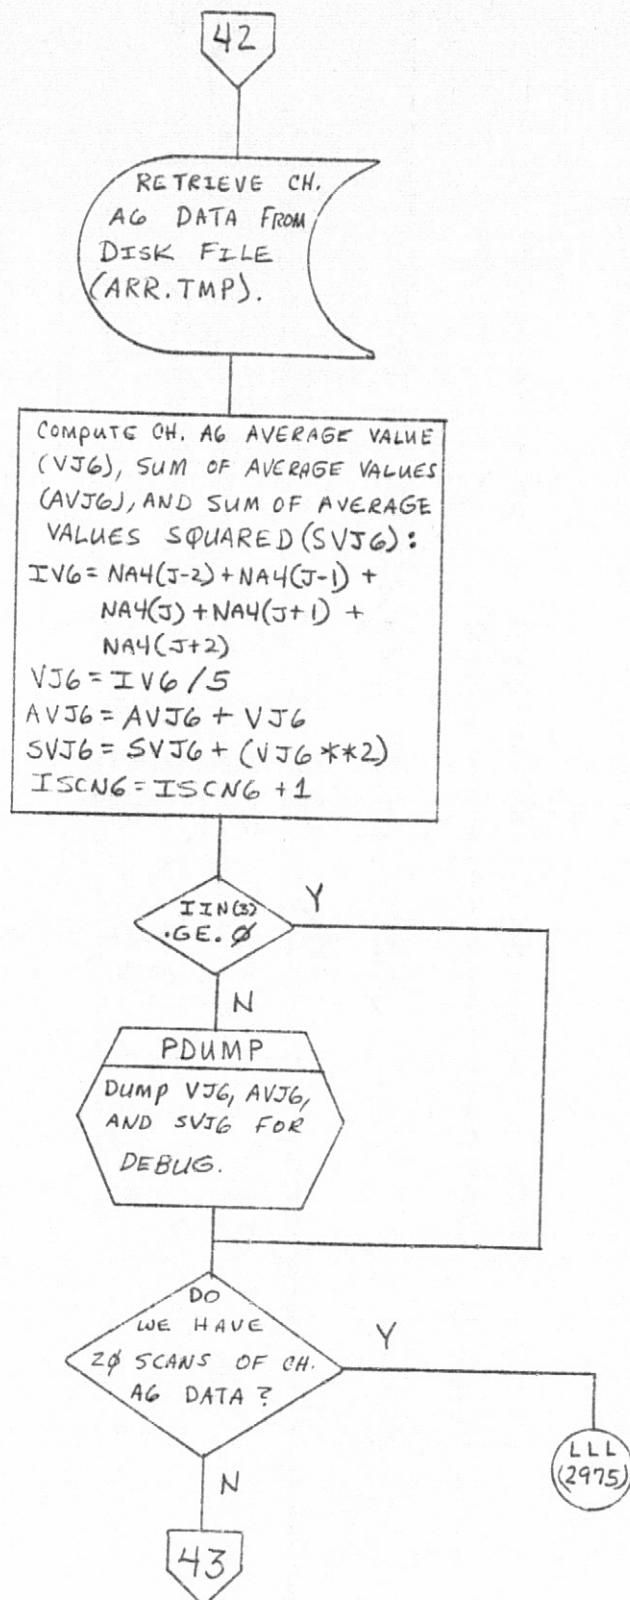 42
RETRIEVE CH.
A6 DATA FROM
DISK FILE
(ARR.TMP).
COMPUTE CH. A6 AVERAGE VALUE
(VJ6), SUM OF AVERAGE VALUES
(AVJ6), AND SUM OF AVERAGE
VALUES SQUARED (SVJ6):
IV6 = NA4(J-2) + NA4(J-1) +
NA4(J) + NA4(J+1) +
NA4(J+2)
VJ6 = IV6 / 5
AVJ6 = AVJ6 + VJ6
SVJ6 = SVJ6 + (VJ6 **2)
ISCN6 = ISCN6 + 1
IIN(3)
.GE. Ø
Y
N
PDUMP
DUMP VJ6, AVJ6,
AND SVJ6 FOR
DEBUG.
DO
WE HAVE
2Ø SCANS OF CH.
A6 DATA ?
Y
N
LLL
(2975)
43